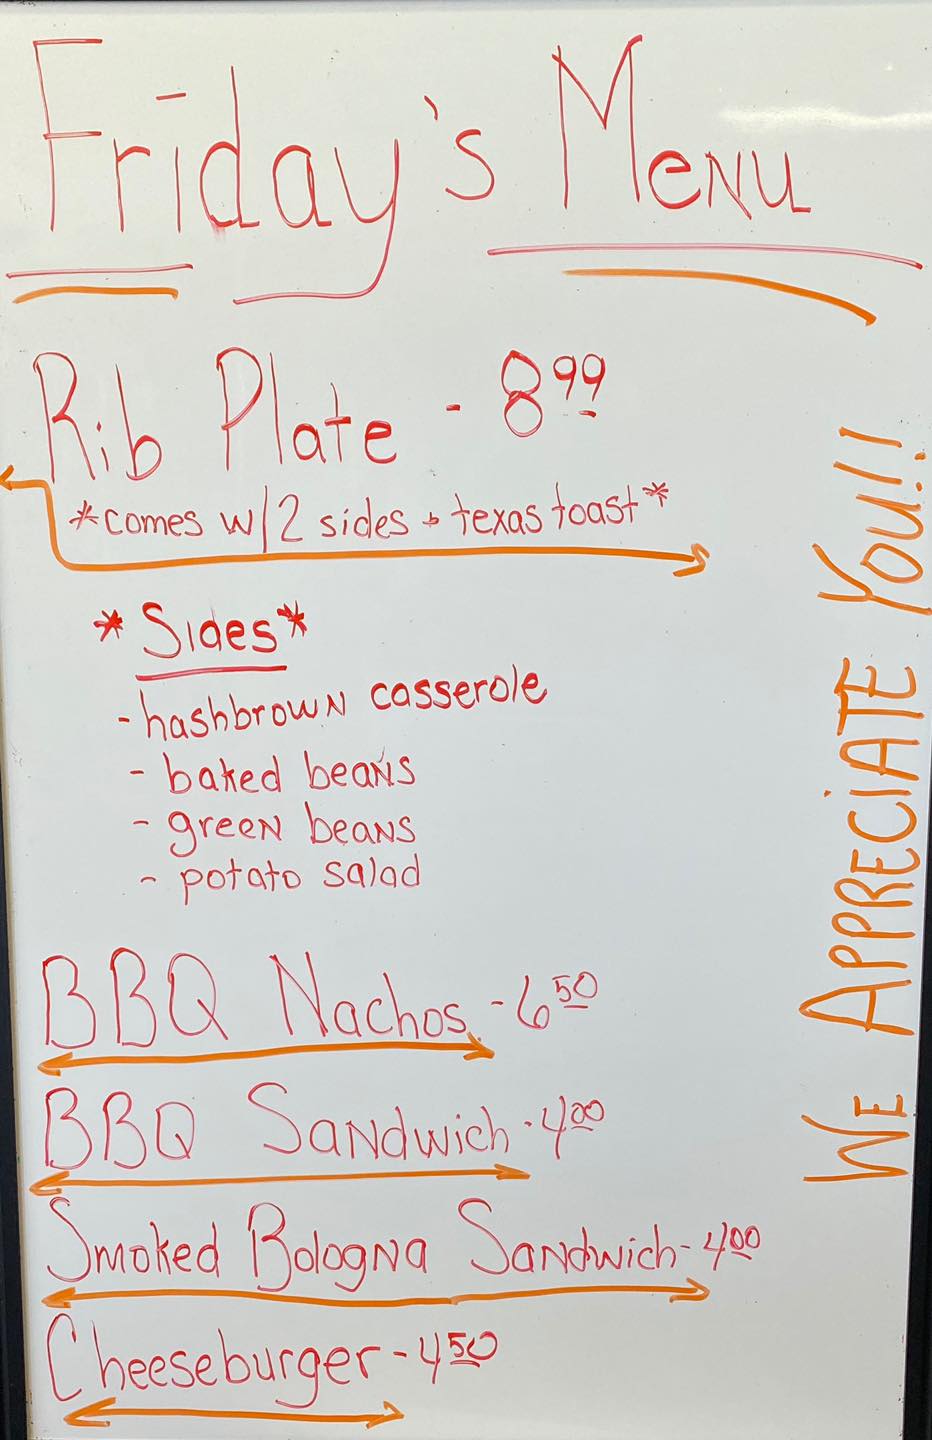 Friday's Menu
Rib Plate - 8.99
*comes w/2 sides + texas toast*
*Sides*
- hashbrown casserole
- baked beans
- green beans
- potato salad
BBQ Nachos - 6.50
BBQ Sandwich - 4.00
Smoked Bologna Sandwich - 4.00
Cheeseburger - 4.50
WE APPRECiATE YOU!!!